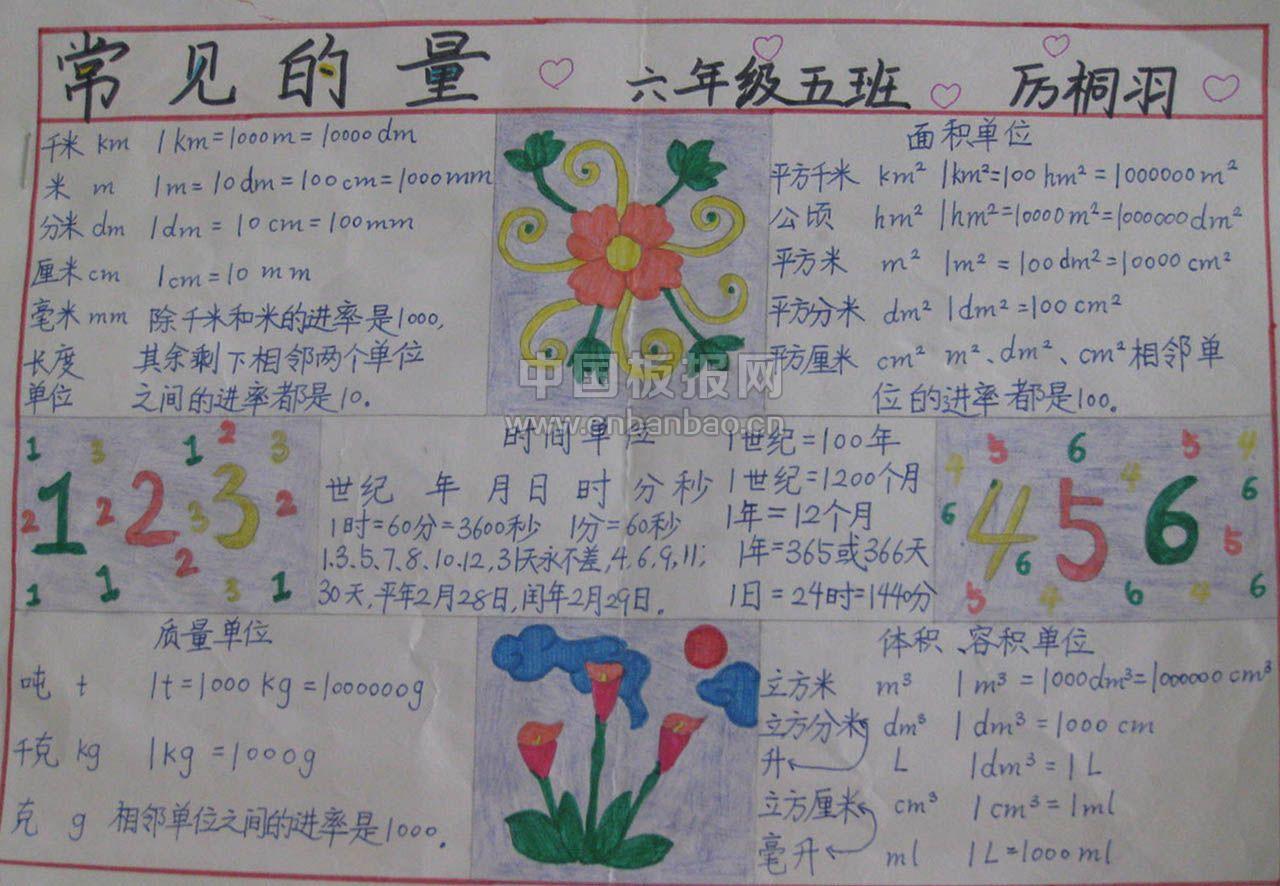 常见的量 六年级五班 厉桐羽
千米 km 1km=1000m=10000dm
米 m 1m=10dm=100cm=1000mm
分米 dm 1dm=10cm=100mm
厘米 cm 1cm=10mm
毫米 mm 除千米和米的进率是1000,
长度 其余剩下相邻两个单位
单位 之间的进率都是10.
面积单位
平方千米 km² 1km²=100hm²=1000000m²
公顷 hm² 1hm²=10000m²=1000000dm²
平方米 m² 1m²=100dm²=10000cm²
平方分米 dm² 1dm²=100cm²
平方厘米 cm² m²、dm²、cm²相邻单
位的进率都是100.
中国板报网
www.cnbanbao.cn
1 3 1 2 3
1 2 2 3 3 2
2
1 1 3 1
时间单位
世纪 年 月 日 时 分 秒
1时=60分=3600秒 1分=60秒
1.3.5.7.8.10.12,31天永不差,4,6,9,11;
30天,平年2月28日,闰年2月29日.
1世纪=100年
1世纪=1200个月
1年=12个月
1年=365或366天
1日=24时=1440分
4 5 6 4 5 4 6
6 4 5 6 5
6
5 4 6 4 6
质量单位
吨 t 1t=1000kg=1000000g
千克 kg 1kg=1000g
克 g 相邻单位之间的进率是1000.
体积、容积单位
立方米 m³ 1m³=1000dm³=1000000cm³
立方分米 dm³ 1dm³=1000cm
升 L 1dm³=1L
立方厘米 cm³ 1cm³=1ml
毫升 ml 1L=1000ml